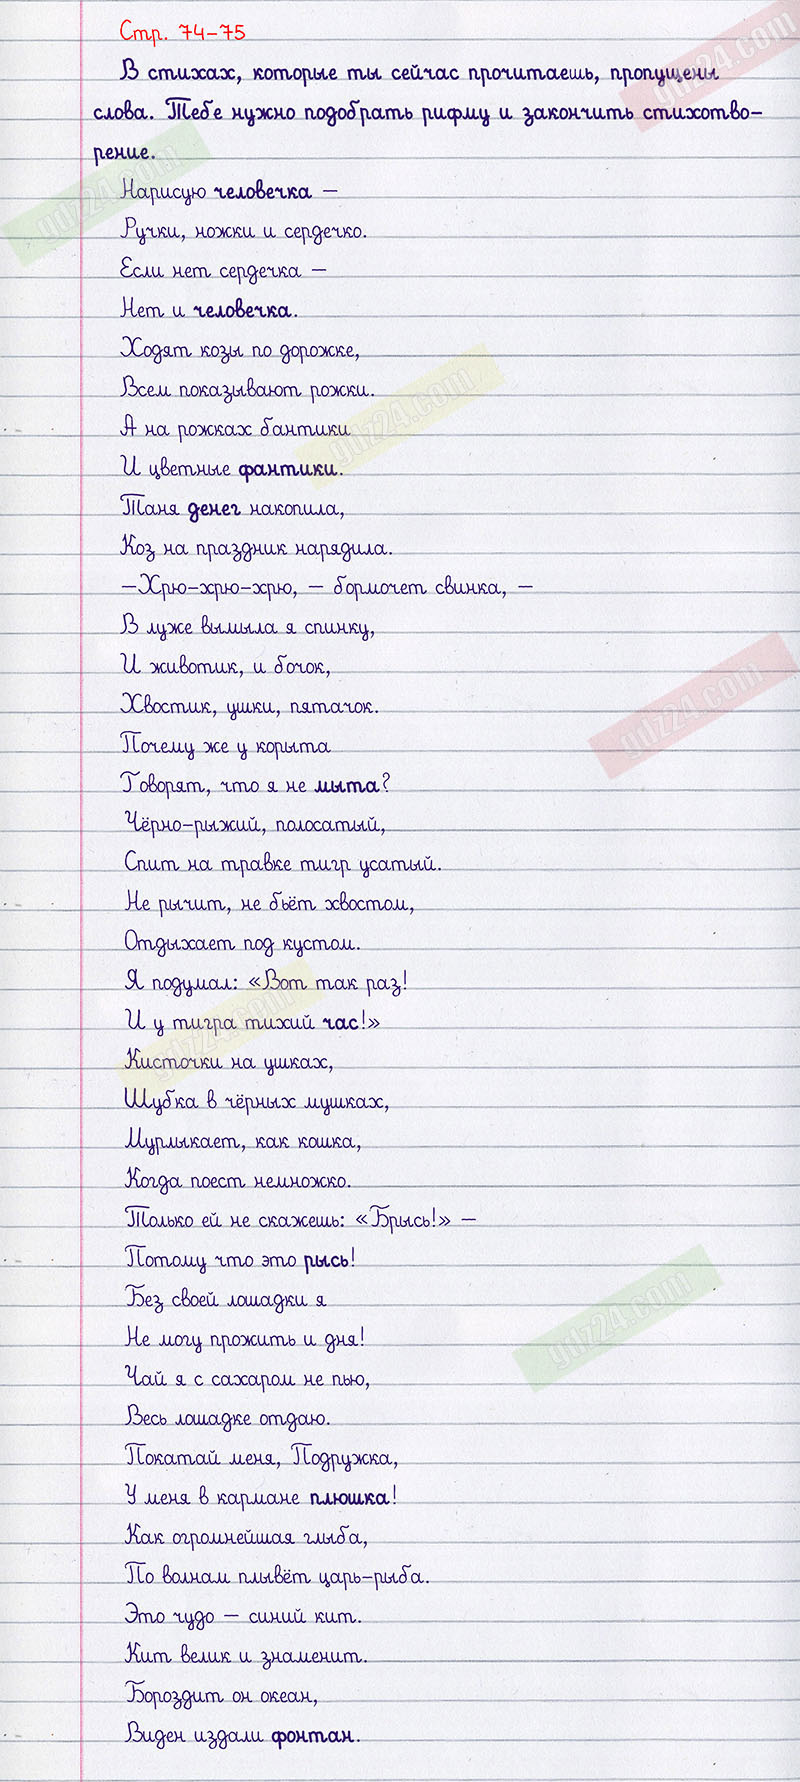 Стр. 74-75
В стихах, которые ты сейчас прочитаешь, пропущены
слова. Тебе нужно подобрать рифму и закончить стихотво-
рение.
Нарисую человечка –
Ручки, ножки и сердечко.
Если нет сердечка –
Нет и человечка.
Ходят козы по дорожке,
Всем показывают рожки.
А на рожках бантики
И цветные фантики.
Таня денег накопила,
Коз на праздник нарядила.
–Хрю-хрю-хрю, – бормочет свинка, –
В луже вымыла я спинку,
И животик, и бочок,
Хвостик, ушки, пятачок.
Почему же у корыта
Говорят, что я не мыта?
Чёрно-рыжий, полосатый,
Спит на травке тигр усатый.
Не рычит, не бьёт хвостом,
Отдыхает под кустом.
Я подумал: «Вот так раз!
И у тигра тихий час!»
Кисточки на ушках,
Шубка в чёрных мушках,
Мурлыкает, как кошка,
Когда поест немножко.
Только ей не скажешь: «Брысь!» –
Потому что это рысь!
Без своей лошадки я
Не могу прожить и дня!
Чай я с сахаром не пью,
Весь лошадке отдаю.
Покатай меня, Подружка,
У меня в кармане плюшка!
Как огромнейшая глыба,
По волнам плывёт царь-рыба.
Это чудо – синий кит.
Кит велик и знаменит.
Бороздит он океан,
Виден издали фонтан.
gdz24.com
gdz24.com
gdz24.com
gdz24.com
gdz24.com
gdz24.com